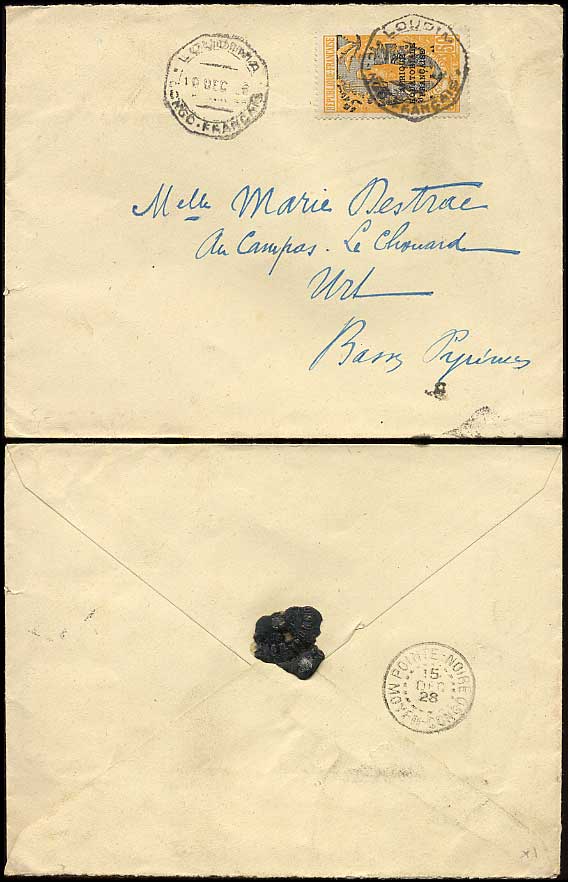 LOUDIMA
10 DEC
CONGO-FRANÇAIS
LOUDIM
CONGO-FRANÇAIS
RÉPUBLIQUE FRANÇAISE
AFRIQUE
ÉQUATORIALE
FRANÇAISE
Melle Marie Destrac
Au Campas. Le Chouard
Urt
Basses Pyrénées
POINTE-NOIRE
15
DEC
28
MOYEN-CONGO